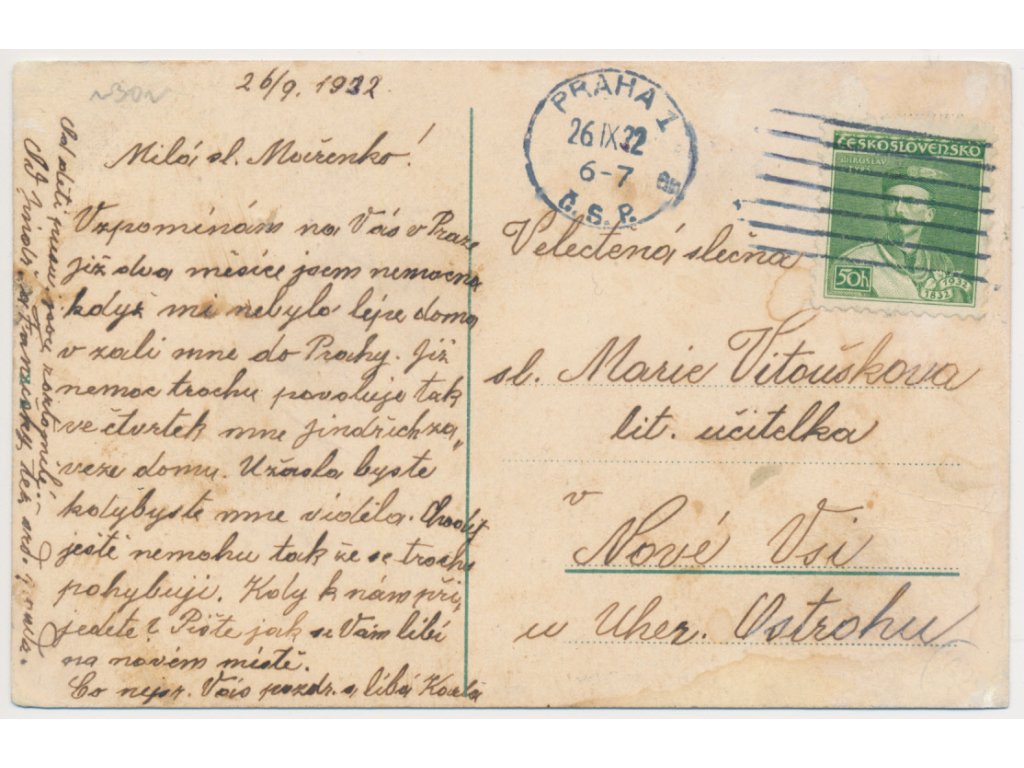 26/9. 1932
Milá sl. Mařenko!
Vzpomínám na Vás v Praze
již dva měsíce jsem nemocna
když mi nebylo lépe doma
vzali mne do Prahy. Již
nemoc trochu povoluje tak
ve čtvrtek mne Jindřich za„
veze domu. Užasla byste
kdybyste mne viděla. Chodit
ještě nemohu tak že se trochu
pohybuji. Kdy k nám při„
jedete? Pište jak se Vám líbí
na novém místě.
Co nejsr. Vás pozdr. a líbá
Od dětí
PRAHA 1
26 IX 32
6-7
Č.S.P.
ČESKOSLOVENSKO
MIROSLAV
TYRŠ
50h
1832 1932
Velectená slečna
sl. Marie Vitouškova
lit. učitelka
v
Nové Vsi
u Uher. Ostrohu